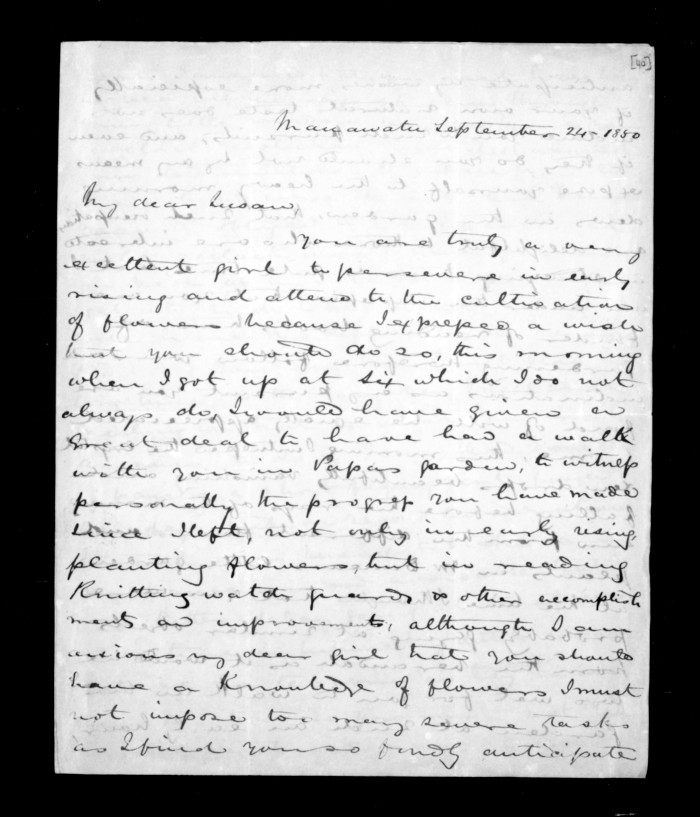 [40]
Manawatu September 24 - 1850
My dear Susan
You are truly a very
excellente girl to persevere in early
rising and attend to the cultivation
of flowers because I expressed a wish
that you should do so, this morning
when I got up at six which I do not
always do, I would have given a
great deal to have had a walk
with you in Papas garden, to witness
personally the progress you have made
since I left, not only in early rising
planting flowers, but in reading
Knitting watch guards & other accomplish
ments or improvements, although I am
anxious my dear girl that you should
have a Knowledge of flowers I must
not impose too many severe tasks
as I find you so fondly anticipate